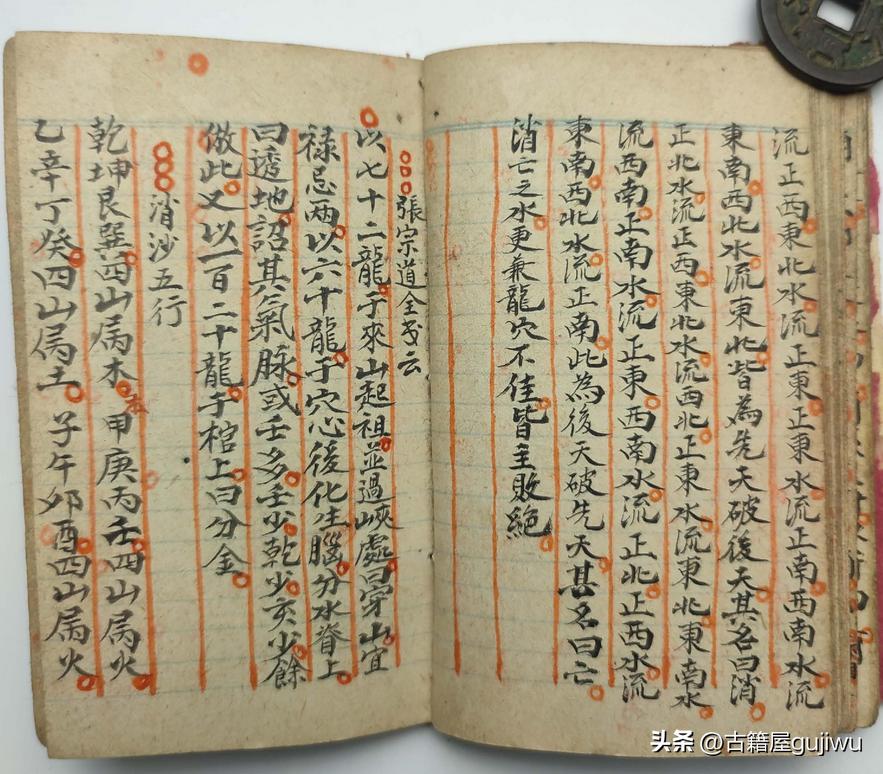 流正西東北水流正東正東水流正南西南水流
東南西北水流東北皆為先天破後天其名曰消
正北水流正西東北水流西北正東水流東北東南水
流西南正南水流正東西南水流正北正西水流
東南西北水流正南此為後天破先天其名曰亡
消亡之水更兼龍穴不佳皆主敗絕
張宗道全云
以七十二龍于來山起祖並過峽處曰穿山宜
祿忌兩以六十龍于穴心後化生腦分水脊上
曰透地詔其氣脉或壬多壬少乾少亥少餘
倣此又以一百二十龍于棺上曰分金
消沙五行
乾坤艮巽四山属木甲庚丙壬四山属火
乙辛丁癸四山属土子午卯酉四山属火
头条 @古籍屋gujiwu